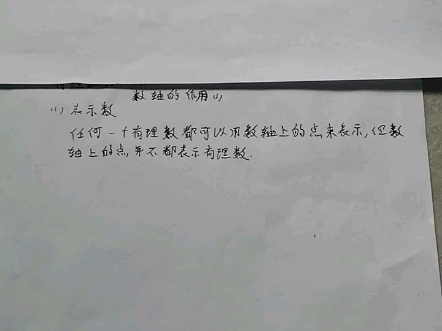 数轴的作用(1)
(1) 表示数
任何一个有理数都可以用数轴上的点来表示,但数
轴上的点,并不都表示有理数.